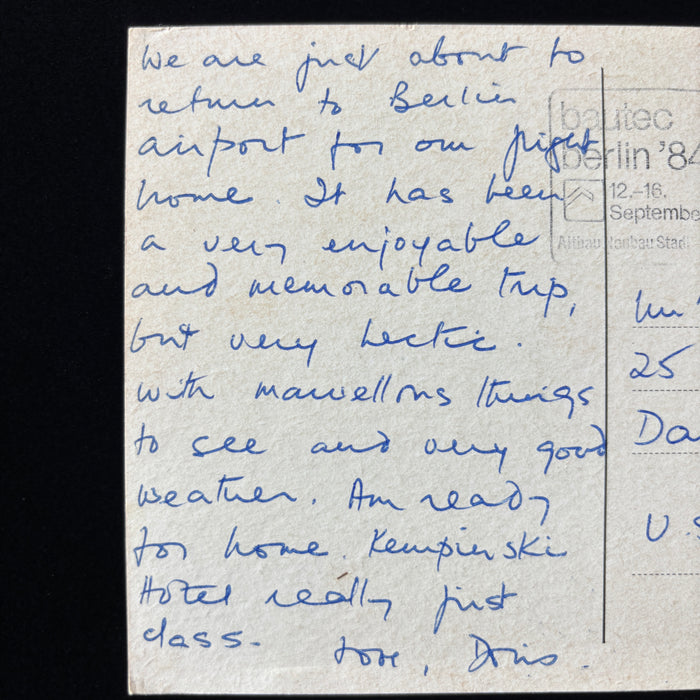 We are just about to
return to Berlin
airport for our flight
home. It has been
a very enjoyable
and memorable trip,
but very hectic.
with marvellous things
to see and very good
weather. Am ready
for home. Kempinski
Hotel really first
class.
Love, Doris.
bautec
berlin '84
12.-16.
Septembe
25
Da
U.S